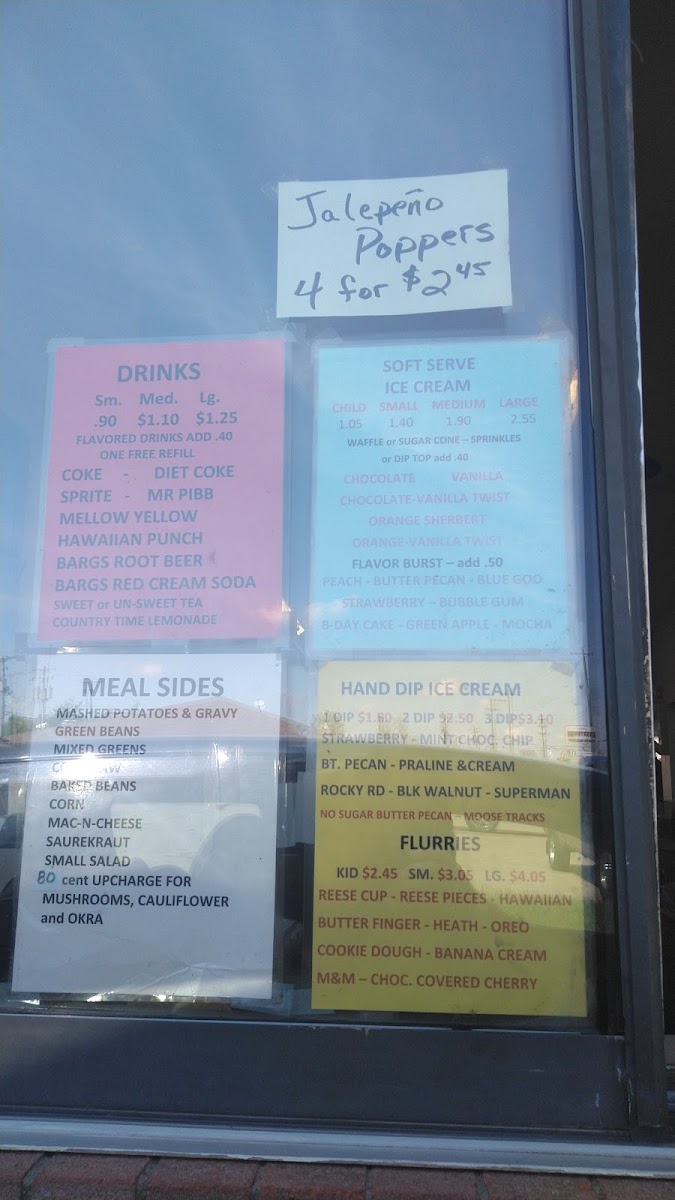 Jalepeño
Poppers
4 for $2.45
DRINKS
Sm. Med. Lg.
.90 $1.10 $1.25
FLAVORED DRINKS ADD .40
ONE FREE REFILL
COKE - DIET COKE
SPRITE - MR PIBB
MELLOW YELLOW
HAWAIIAN PUNCH
BARGS ROOT BEER
BARGS RED CREAM SODA
SWEET or UN-SWEET TEA
COUNTRY TIME LEMONADE
SOFT SERVE
ICE CREAM
CHILD SMALL MEDIUM LARGE
1.05 1.40 1.90 2.55
WAFFLE or SUGAR CONE – SPRINKLES
or DIP TOP add .40
CHOCOLATE VANILLA
CHOCOLATE-VANILLA TWIST
ORANGE SHERBERT
ORANGE-VANILLA TWIST
FLAVOR BURST – add .50
PEACH - BUTTER PECAN - BLUE GOO
STRAWBERRY – BUBBLE GUM
B-DAY CAKE - GREEN APPLE - MOCHA
MEAL SIDES
MASHED POTATOES & GRAVY
GREEN BEANS
MIXED GREENS
BAKED BEANS
CORN
MAC-N-CHEESE
SAUREKRAUT
SMALL SALAD
80 cent UPCHARGE FOR
MUSHROOMS, CAULIFLOWER
and OKRA
HAND DIP ICE CREAM
1 DIP $1.80 2 DIP $2.50 3 DIP$3.10
STRAWBERRY - MINT CHOC. CHIP
BT. PECAN - PRALINE &CREAM
ROCKY RD - BLK WALNUT - SUPERMAN
NO SUGAR BUTTER PECAN - MOOSE TRACKS
FLURRIES
KID $2.45 SM. $3.05 LG. $4.05
REESE CUP - REESE PIECES - HAWAIIAN
BUTTER FINGER - HEATH - OREO
COOKIE DOUGH - BANANA CREAM
M&M – CHOC. COVERED CHERRY